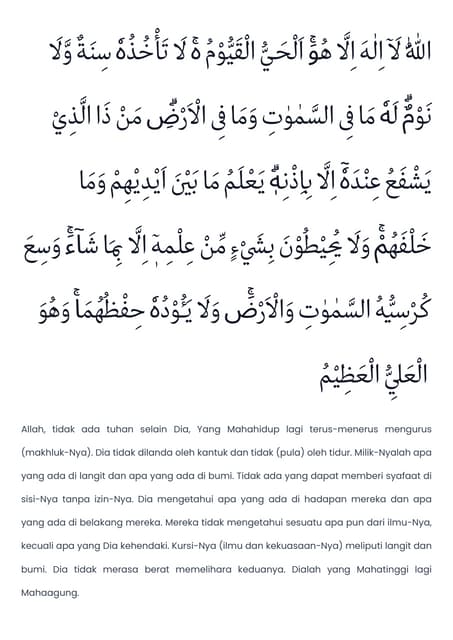 اَللّٰهُ لَآ اِلٰهَ اِلَّا هُوَۚ اَلْحَيُّ الْقَيُّوْمُ ەۚ لَا تَأْخُذُهٗ سِنَةٌ وَّلَا
نَوْمٌۗ لَهٗ مَا فِى السَّمٰوٰتِ وَمَا فِى الْاَرْضِۗ مَنْ ذَا الَّذِيْ
يَشْفَعُ عِنْدَهٗٓ اِلَّا بِاِذْنِهٖۗ يَعْلَمُ مَا بَيْنَ اَيْدِيْهِمْ وَمَا
خَلْفَهُمْۚ وَلَا يُحِيْطُوْنَ بِشَيْءٍ مِّنْ عِلْمِهٖٓ اِلَّا بِمَا شَاۤءَۚ وَسِعَ
كُرْسِيُّهُ السَّمٰوٰتِ وَالْاَرْضَۚ وَلَا يَـُٔوْدُهٗ حِفْظُهُمَاۚ وَهُوَ
الْعَلِيُّ الْعَظِيْمُ
Allah, tidak ada tuhan selain Dia, Yang Mahahidup lagi terus-menerus mengurus
(makhluk-Nya). Dia tidak dilanda oleh kantuk dan tidak (pula) oleh tidur. Milik-Nyalah apa
yang ada di langit dan apa yang ada di bumi. Tidak ada yang dapat memberi syafaat di
sisi-Nya tanpa izin-Nya. Dia mengetahui apa yang ada di hadapan mereka dan apa
yang ada di belakang mereka. Mereka tidak mengetahui sesuatu apa pun dari ilmu-Nya,
kecuali apa yang Dia kehendaki. Kursi-Nya (ilmu dan kekuasaan-Nya) meliputi langit dan
bumi. Dia tidak merasa berat memelihara keduanya. Dialah yang Mahatinggi lagi
Mahaagung.